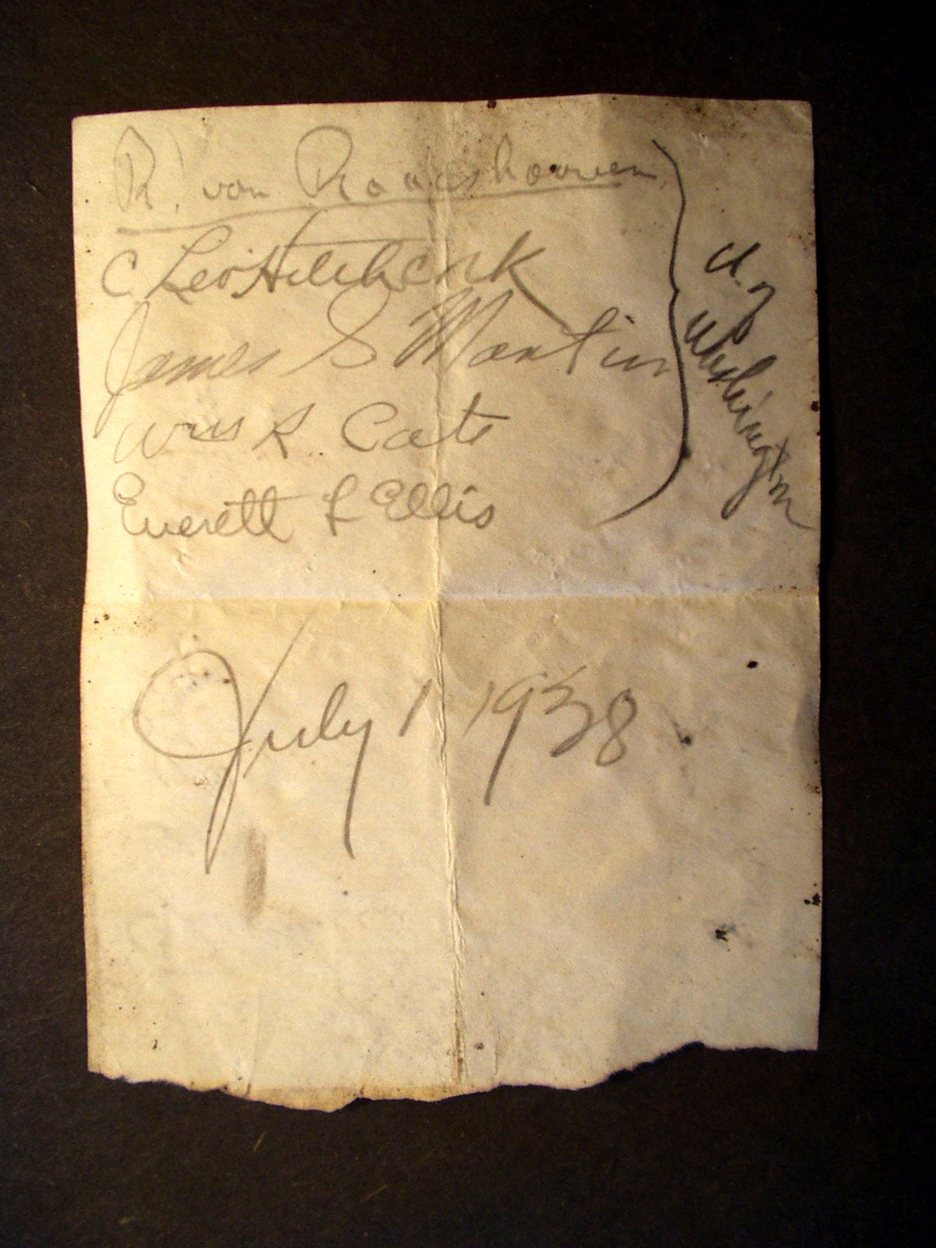 R. van
C. Leo Hitchcock
James S Martin
Wm S. Cate
Everett L Ellis
U. of
Washington
July 1 1938